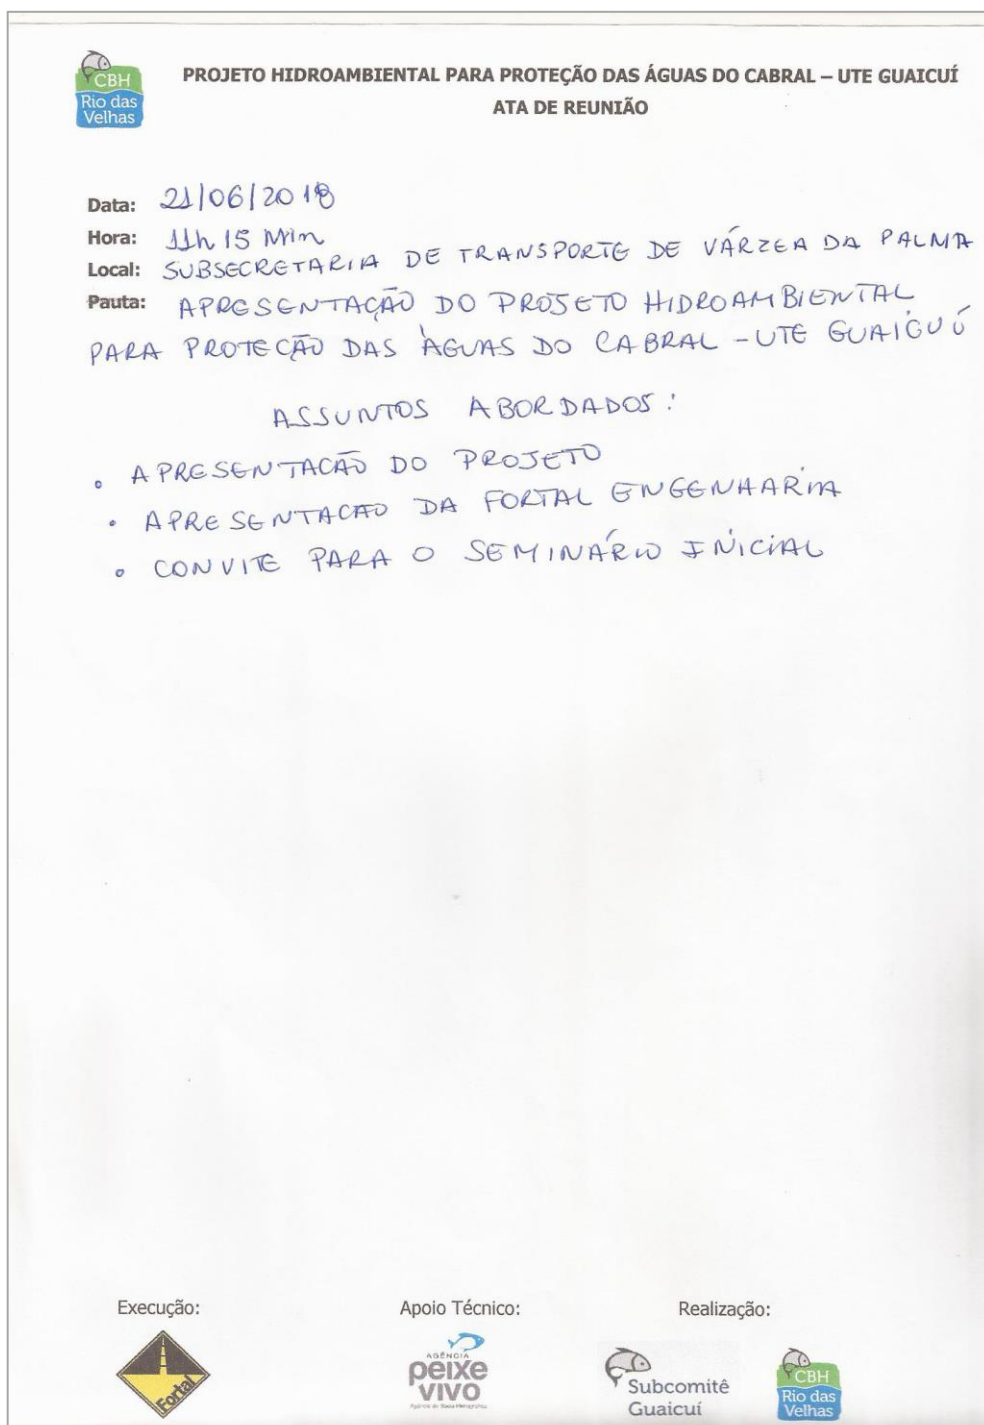 CBH
Rio das
Velhas
PROJETO HIDROAMBIENTAL PARA PROTEÇÃO DAS ÁGUAS DO CABRAL – UTE GUAICUÍ
ATA DE REUNIÃO
Data: 21/06/2018
Hora: 11h 15 Min
Local: SUBSECRETARIA DE TRANSPORTE DE VÁRZEA DA PALMA
Pauta: APRESENTAÇÃO DO PROJETO HIDROAMBIENTAL
PARA PROTEÇÃO DAS ÁGUAS DO CABRAL - UTE GUAICUÍ
ASSUNTOS ABORDADOS:
• APRESENTACÃO DO PROJETO
• APRESENTACAO DA FORTAL ENGENHARIA
• CONVITE PARA O SEMINÁRIO INICIAL
Execução:
Apoio Técnico:
Realização:
Fortal
AGÊNCIA
peixe
vivo
Subcomitê
Guaicuí
CBH
Rio das
Velhas